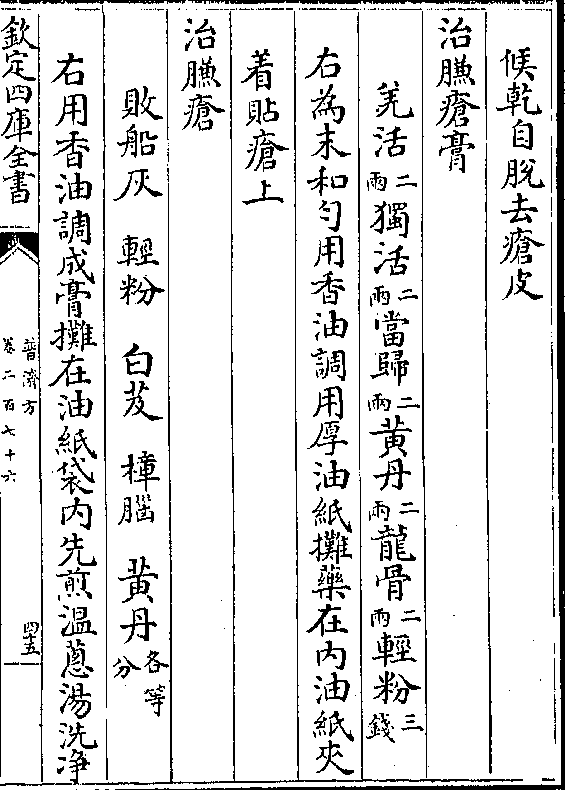 候乾自脫去瘡皮
治臁瘡膏
羌活二兩獨活二兩當歸二兩黄丹二兩龍骨二兩輕粉三錢
右為末和勻用香油調用厚油紙攤藥在内油紙夾
着貼瘡上
治臁瘡
敗船灰　輕粉　白芨　樟腦　黄丹各等分
右用香油調成膏攤在油紙袋内先煎温蔥湯洗净
欽定四庫全書
普濟方
卷二百七十六
四五